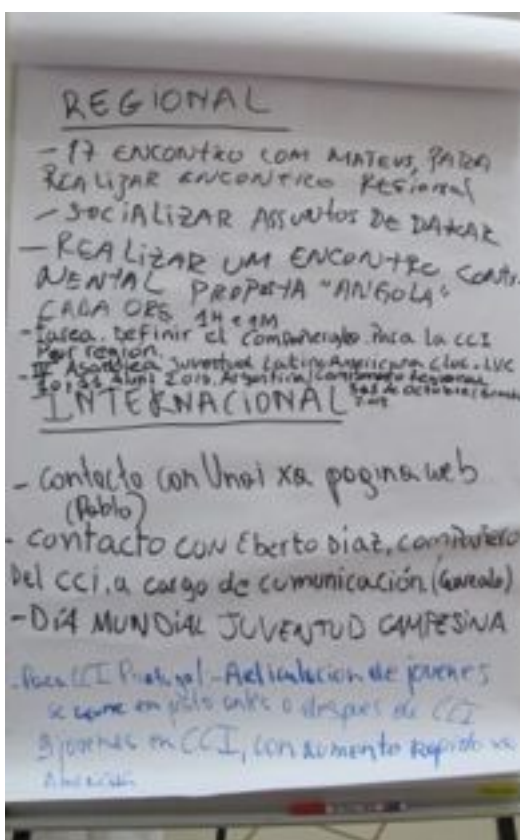 REGIONAL
- 17 ENCONTRO COM MATEUS, PARA
REALIZAR ENCONTRO REGIONAL
- SOCIALIZAR ASSUNTOS DE DAKAR
- REALIZAR UM ENCONTRO CONTI-
NENTAL PROPOSTA "ANGOLA"
CADA ORG 1H e 1M
- Tarea. Definir el compañero/a para la CCI
por región.
- Asamblea Juventud LatinoAmericana Cloc-LVC
Argentina
INTERNACIONAL
- Contacto con Unai xa pagina web
(Pablo)
- contacto con Eberto Diaz, compañero
Del cci, a cargo de comunicación (Gonzalo)
- DÍA MUNDIAL JUVENTUD CAMPESINA
- Para CCI Portugal - Articulacion de jovenes
antes o despues de CCI
jovenes en CCI, con aumento rapido xa